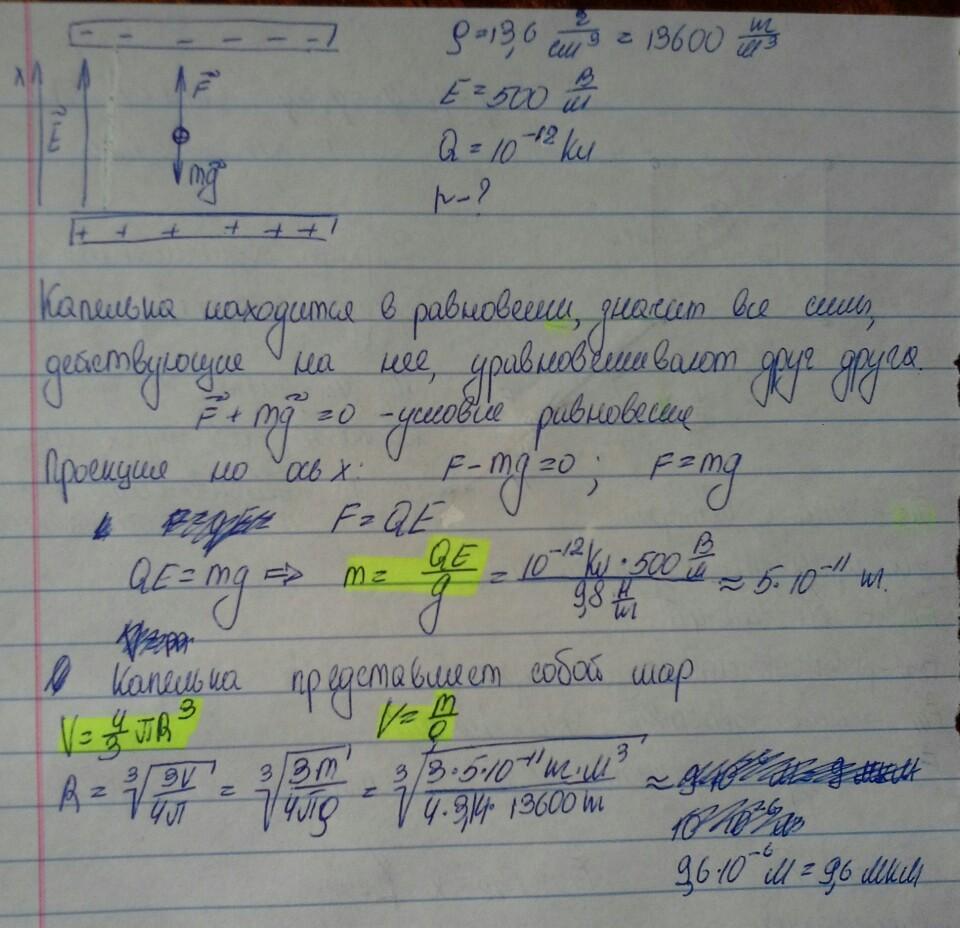 - - - - - -
ρ = 13,6 г/см³ = 13600 кг/м³
x E⃗ F⃗
E = 500 В/м
Q = 10⁻¹² Кл
mg⃗
r - ?
+ + + + + +
Капелька находится в равновесии, значит все силы,
действующие на нее, уравновешивают друг друга.
F⃗ + mg⃗ = 0 - условие равновесия
Проекция на ось x: F - mg = 0 ; F = mg
F = QE
QE = mg => m = QE/g = 10⁻¹² Кл · 500 В/м / 9,8 Н/кг ≈ 5 · 10⁻¹¹ кг.
Капелька представляет собой шар
V = 4/3 πR³ V = m/ρ
R = ∛(3V/4π) = ∛(3m/4πρ) = ∛(3 · 5 · 10⁻¹¹ кг · м³ / 4 · 3,14 · 13600 кг) ≈
9,6 · 10⁻⁶ м = 9,6 мкм